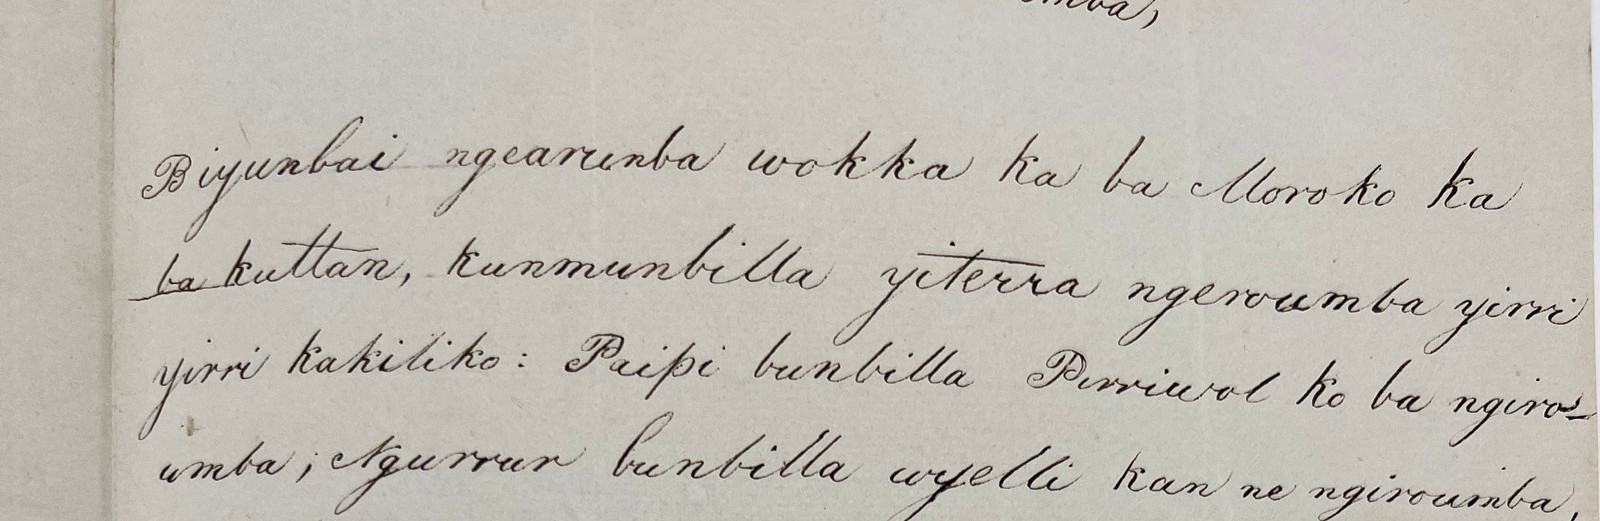 Biyunbai ngearunba wokka ka ba Moroko ka
ba kuttan, kunmunbilla yiterra ngeroumba yirri
yirri kakiliko: Paipi bunbilla Pirriwol ko ba ngiro-
umba; Ngurrur bunbilla wyelli kan ne ngiroumba,